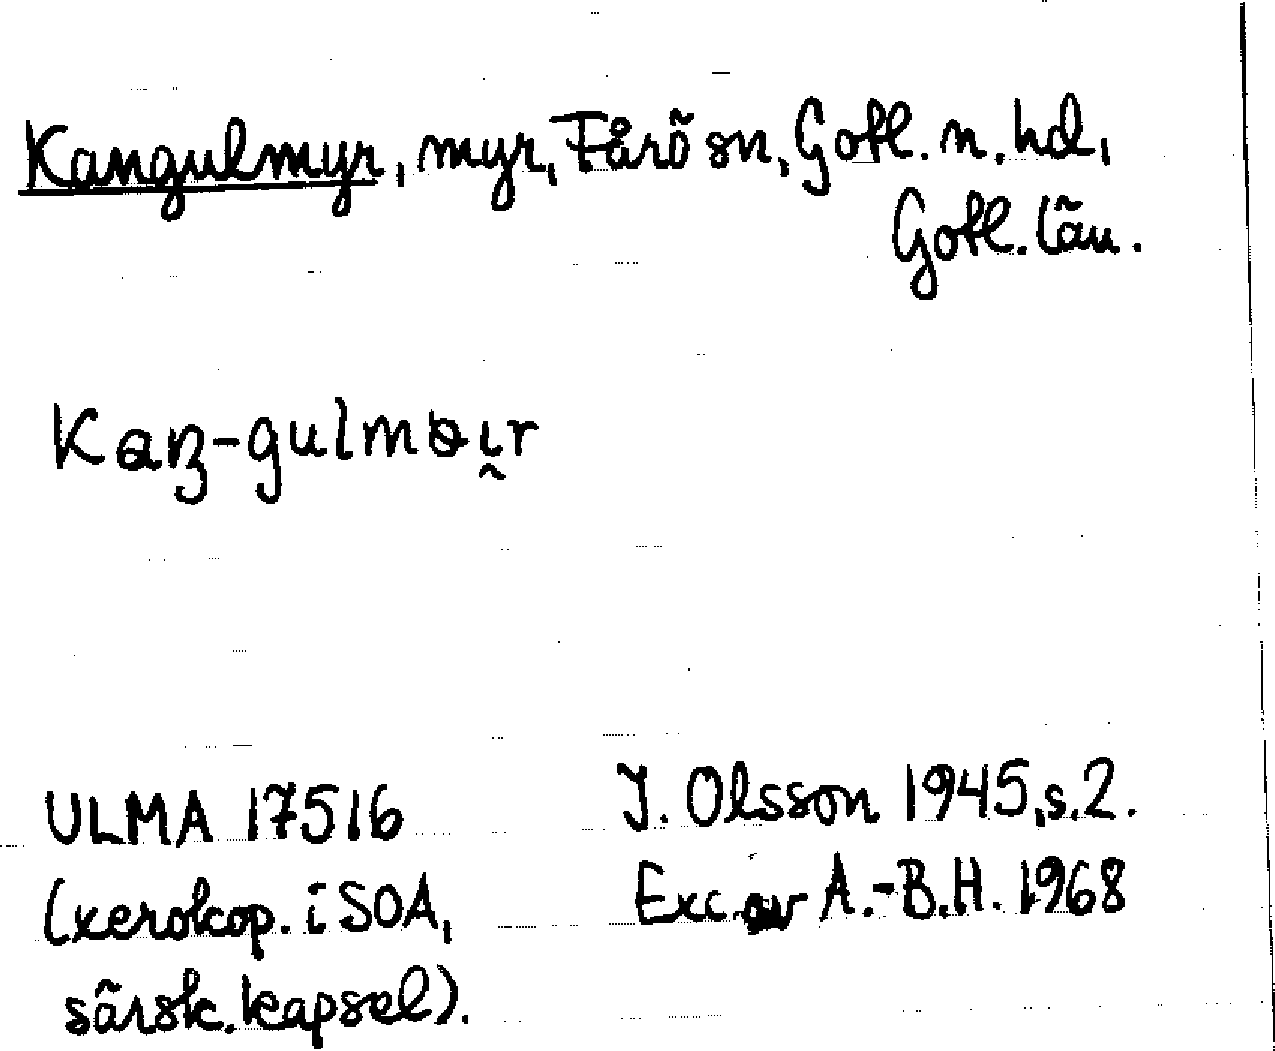 Kangulmyr, myr, Fårö sn, Gotl. n. hd,
Gotl. län.
Kaŋ-gulmɵı̯r
ULMA 17516
(xerokop. i SOA,
särsk. kapsel).
J. Olsson 1945, s. 2.
Exc. av A.-B.H. 1968